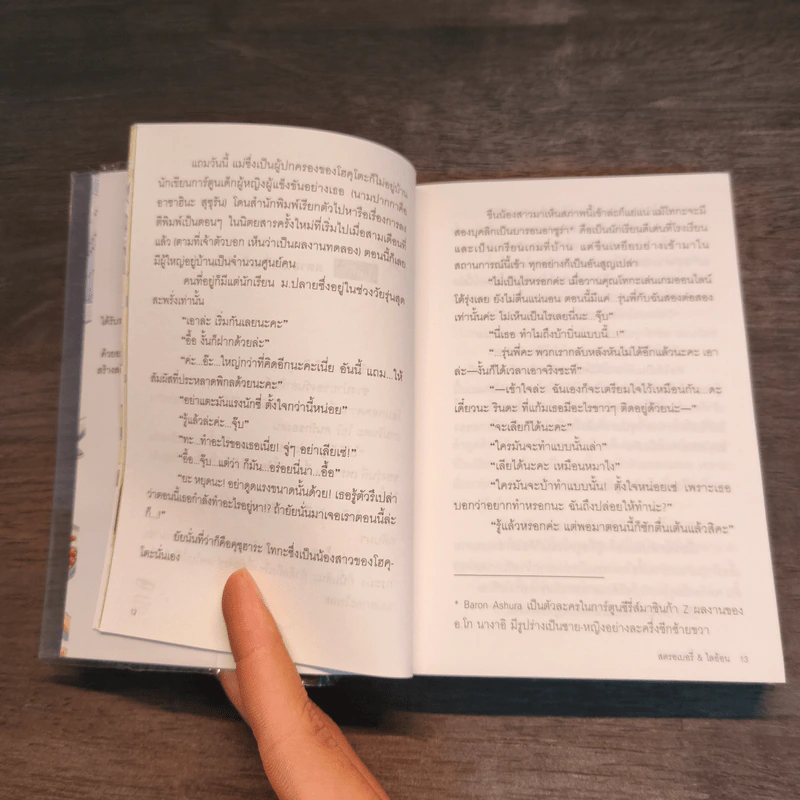 ได้รับร
ด้วยอ
สร้างส
แถมวันนี้ แม่ซึ่งเป็นผู้ปกครองของโฮคุโตะก็ไม่อยู่บ้าน
นักเขียนการ์ตูนเด็กผู้หญิงผู้แข็งขันอย่างเธอ (นามปากกาคือ
อาซาฮินะ สุซุรัน) โดนสำนักพิมพ์เรียกตัวไปหารือเรื่องการลง
ตีพิมพ์เป็นตอนๆ ในนิตยสารครั้งใหม่ที่เริ่มไปเมื่อสามเดือนที่
แล้ว (ตามที่เจ้าตัวบอก เห็นว่าเป็นผลงานทดลอง) ตอนนี้ก็เลย
มีผู้ใหญ่อยู่บ้านเป็นจำนวนศูนย์คน
คนที่อยู่ก็มีแต่นักเรียน ม.ปลายซึ่งอยู่ในช่วงวัยรุ่นสุด
สะพรั่งเท่านั้น
"เอาล่ะ เริ่มกันเลยนะคะ"
"อื้อ งั้นก็ฝากด้วยล่ะ"
"ค่ะ...อ๊ะ...ใหญ่กว่าที่คิดอีกนะคะเนี่ย อันนี้ แถม...ให้
สัมผัสที่ประหลาดพิกลด้วยนะคะ"
"อย่าแตะมันแรงนักซี่ ตั้งใจกว่านี้หน่อย"
"รู้แล้วล่ะค่ะ...จุ๊บ"
"หะ...ทำอะไรของเธอเนี่ย! จู่ๆ อย่าเลียเซ่!"
"อื้อ...จุ๊บ...แต่ว่า ก็มัน...อร่อยนี่นา...อื้อ"
"ยะ หยุดนะ! อย่าดูดแรงขนาดนั้นด้วย! เธอรู้ตัวรึเปล่า
ว่าตอนนี้เธอกำลังทำอะไรอยู่หา!? ถ้ายัยนั่นมาเจอเราตอนนี้ล่ะ
ก็...!"
ยัยนั่นที่ว่าก็คือคุซุฮาระ โทกะซึ่งเป็นน้องสาวของโฮคุ-
โตะนั่นเอง
12
ขืนน้องสาวมาเห็นสภาพนี้เข้าล่ะก็แย่แน่ แม้โทกะจะมี
สองบุคลิกเป็นบารอนอาชูร่า* คือเป็นนักเรียนดีเด่นที่โรงเรียน
และเป็นเกรียนเกมที่บ้าน แต่ขืนเหยียบย่างเข้ามาใน
สถานการณ์นี้เข้า ทุกอย่างก็เป็นอันสูญเปล่า
"ไม่เป็นไรหรอกค่ะ เมื่อวานคุณโทกะเล่นเกมออนไลน์
ได้รุ่งเลย ยังไม่ตื่นแน่นอน ตอนนี้มีแค่...รุ่นพี่กับฉันสองต่อสอง
เท่านั้นค่ะ ไม่เห็นเป็นไรเลยนี่นะ...จุ๊บ"
"นี่เธอ ทำไมถึงบ้าบิ่นแบบนี้...!"
"...รุ่นพี่คะ พวกเรากลับหลังหันไม่ได้อีกแล้วนะคะ เอา
ล่ะ—งั้นก็ได้เวลาเอาจริงซะที"
"—เข้าใจล่ะ ฉันเองก็จะเตรียมใจไว้เหมือนกัน...ดะ
เดี๋ยวนะ รินตะ ที่แก้มเธอมีอะไรขาวๆ ติดอยู่ด้วยน่ะ—"
"จะเลียก็ได้นะคะ"
"ใครมันจะทำแบบนั้นเล่า"
"เลียได้นะคะ เหมือนหมาไง"
"ใครมันจะบ้าทำแบบนั้น! ตั้งใจหน่อยเซ่ เพราะเธอ
บอกว่าอยากทำหรอกนะ ฉันถึงปล่อยให้ทำน่ะ?"
"รู้แล้วหรอกค่ะ แต่พอมาตอนนี้ก็ชักตื่นเต้นแล้วสิคะ"
* Baron Ashura เป็นตัวละครในการ์ตูนซีรี่ส์มาชินก้า Z ผลงานของ
อ.โก นางาอิ มีรูปร่างเป็นชาย-หญิงอย่างละครึ่งซีกซ้ายขวา
สตรอเบอรี่ & ไลอ้อน 13